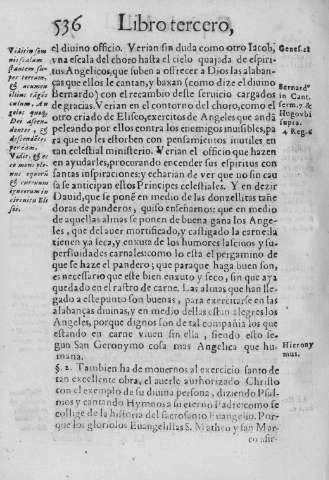 536 Libro tercero,
el diuino officio. Verian sin duda como otro Iacob,
vna escala del choro hasta el cielo quajada de espiri-
tus Angelicos, que suben a ofrecer a Dios las alaban-
ças que ellos le cantan, y baxan (como dize el diuino
Bernardo) con el recambio desse seruicio cargados
de gracias. Verian en el contorno del choro, como el
otro criado de Eliseo, exercitos de Angeles que andã
peleando por ellos contra los enemigos inuisibles, pa
ra que no les estorben con pensamientos inutiles en
tan celestial ministerio. Verian el officio que hazen
en ayudarles, procurando encender sus espiritus con
santas inspiraciones: y echarian de ver que no sin cau
sa se anticipan estos Principes celestiales. Y en dezir
Dauid, que se ponẽ en medio de las donzellitas tañe
doras de panderos, quiso enseñarnos: que en medio
de aquellas almas se ponen de buena gana los Ange-
les, que del auer mortificado, y castigado la carne: la
tienen ya seca, y enxuta de los humores lasciuos y su-
perfluidades carnales: como lo està el pergamino de
que se haze el pandero; que paraque haga buen son,
es necessario que este bien enxuto y seco, sin que aya
quedado en el rastro de carne. Las almas que han lle-
gado a este punto son buenas, para exercitarse en las
alabanças diuinas, y en medio dellas estan alegres los
Angeles, porque dignos son de tal compañia los que
estando en carne viuen sin ella, siendo esto se-
gun San Geronymo cosa mas Angelica que hu-
mana.
§. 2. Tambien ha de mouernos al exercicio santo de
tan excellente obra, el auerle authorizado Christo
con el exemplo de su diuina persona, diziendo Psal-
mos y cantando Hymnos a su eterno Padre: como se
collige de la historia del sacrosanto Euangelio. Por-
que los gloriosos Euangelistas S. Matheo y san Mar-
Viderit som
niscalam
stantem su-
per terram,
& acumen
illius tãgẽs
culum, An
gelos quoq;
Dei ascen-
dentes &
descendẽtes
per eam.
Genes. 28
Bernardº
in Cant.
serm. 7 &
4 Reg. 6
Hierony
mus.